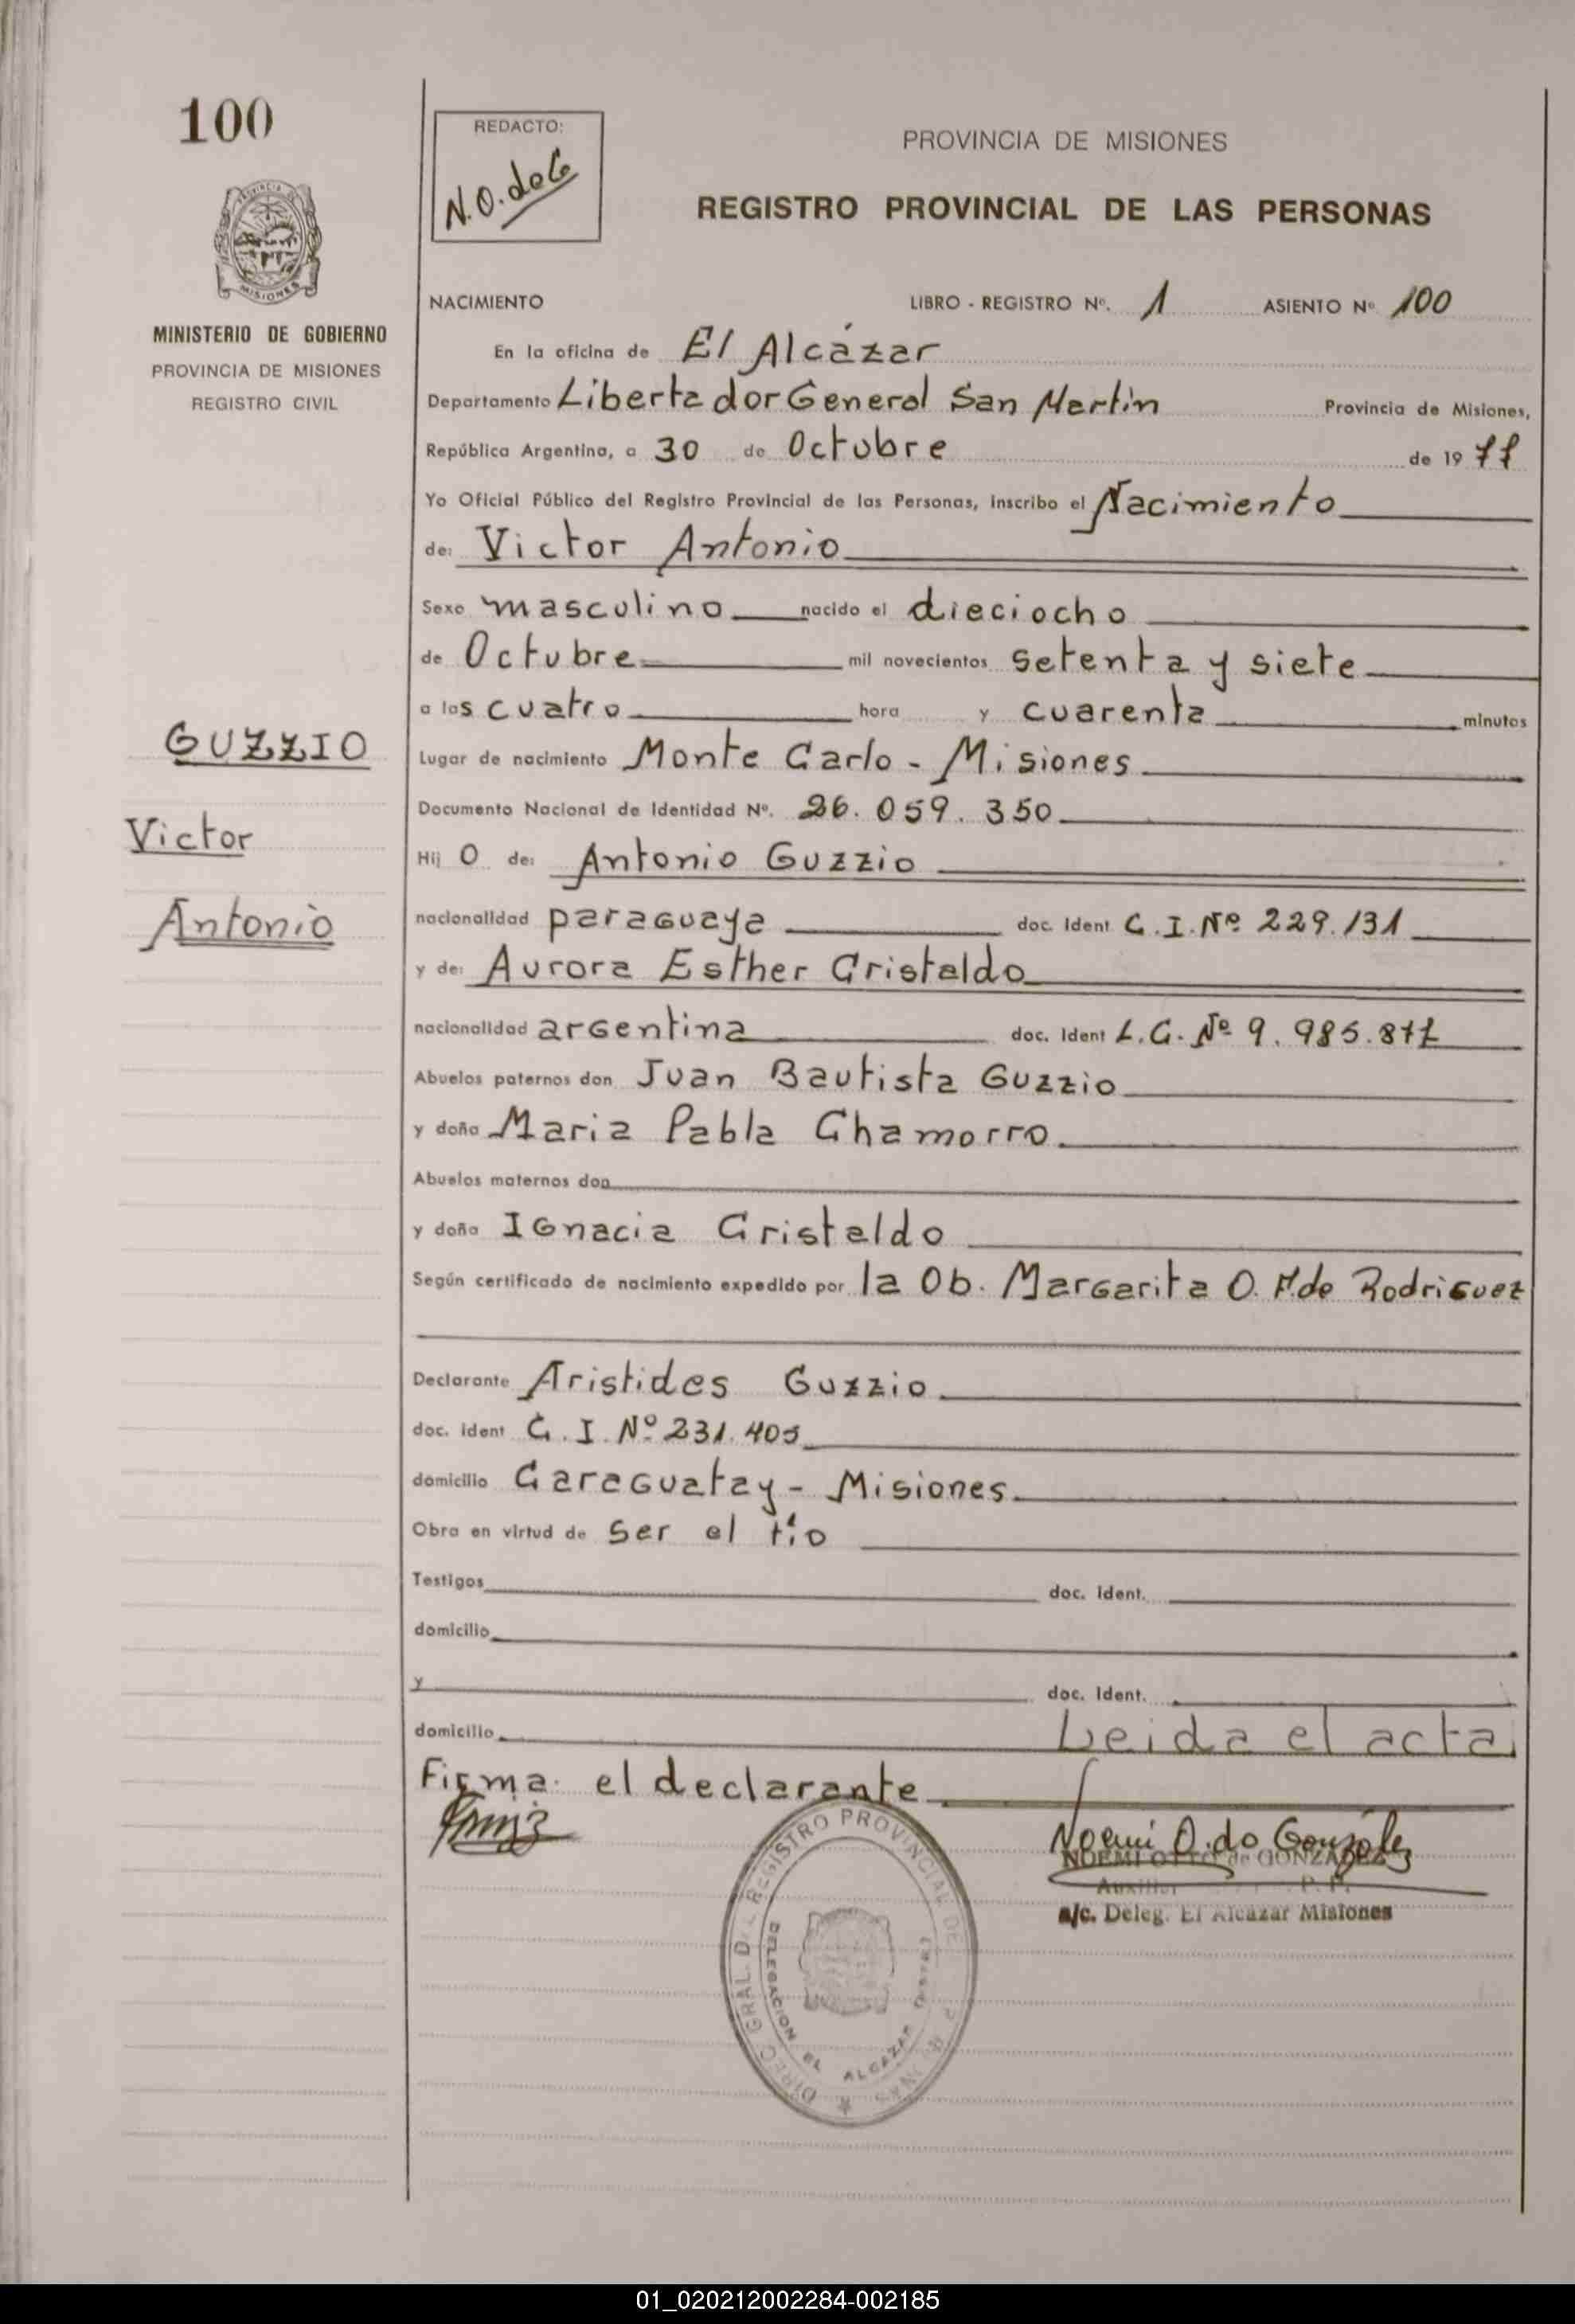 100
REDACTO:
N.O. de G
PROVINCIA DE MISIONES
REGISTRO PROVINCIAL DE LAS PERSONAS
PROVINCIA
MISIONES
MINISTERIO DE GOBIERNO
PROVINCIA DE MISIONES
REGISTRO CIVIL
NACIMIENTO LIBRO - REGISTRO Nº. 1 ASIENTO Nº 100
En la oficina de El Alcázar
Departamento Libertador General San Martín Provincia de Misiones,
República Argentina, a 30 de Octubre de 1977
Yo Oficial Público del Registro Provincial de las Personas, inscribo el Nacimiento
de: Victor Antonio
Sexo masculino nacido el dieciocho
de Octubre mil novecientos setenta y siete
a las cuatro hora y cuarenta minutos
GUZZIO
Victor
Antonio
Lugar de nacimiento Monte Carlo - Misiones
Documento Nacional de Identidad Nº. 26.059.350
Hij o de: Antonio Guzzio
nacionalidad paraguaya doc. Ident C.I. Nº 229.131
y de: Aurora Esther Cristaldo
nacionalidad argentina doc. Ident L.C. Nº 9.985.877
Abuelos paternos don Juan Bautista Guzzio
y doña Maria Pabla Chamorro
Abuelos maternos don
y doña Ignacia Cristaldo
Según certificado de nacimiento expedido por la Ob. Margarita O. de Rodriguez
Declarante Aristides Guzzio
doc. ident C.I. Nº 231.405
domicilio Caraguatay - Misiones
Obra en virtud de ser el tío
Testigos doc. ident.
domicilio
y doc. Ident.
domicilio Leida el acta
Firma: el declarante
Noemi O. de González
NOEMI OTTO de GONZALEZ
Auxiliar R.P.P.
a/c. Deleg. El Alcazar Misiones
DIREC. GRAL. DEL REGISTRO PROVINCIAL DE
DELEGACION EL ALCAZAR
01_020212002284-002185